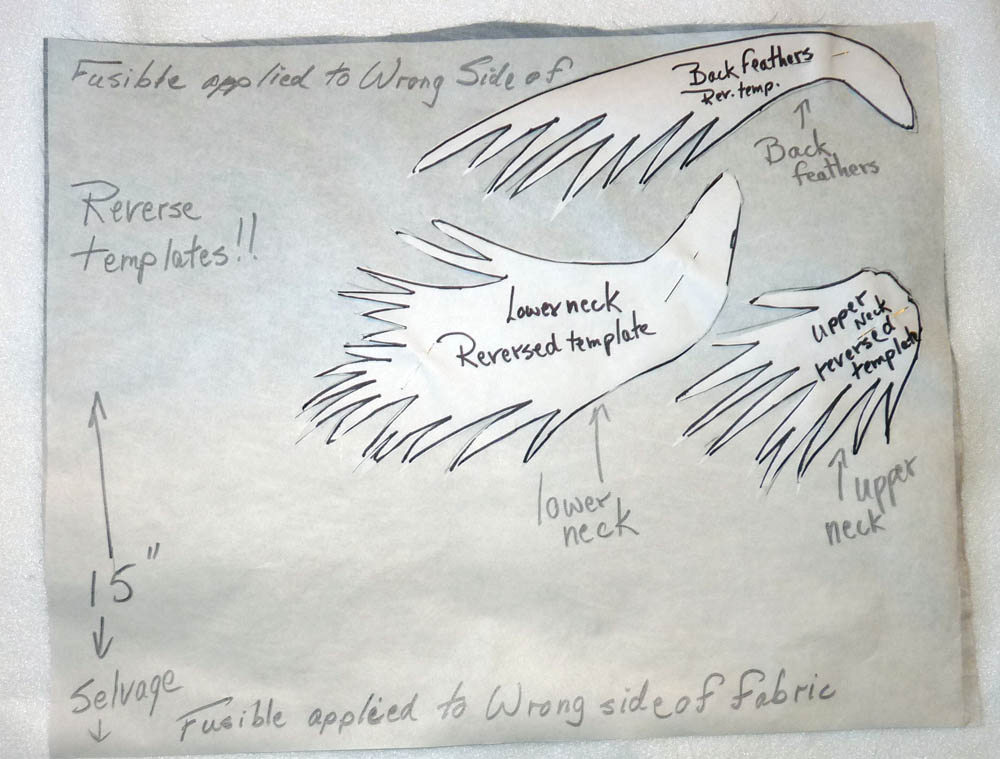 Fusible applied to Wrong Side of
Back feathers
Rev. temp.
Back
feathers
Reverse
templates!!
Lower neck
Reversed template
Upper
Neck
reversed
template
lower
neck
upper
neck
15"
Selvage
Fusible applied to Wrong side of fabric